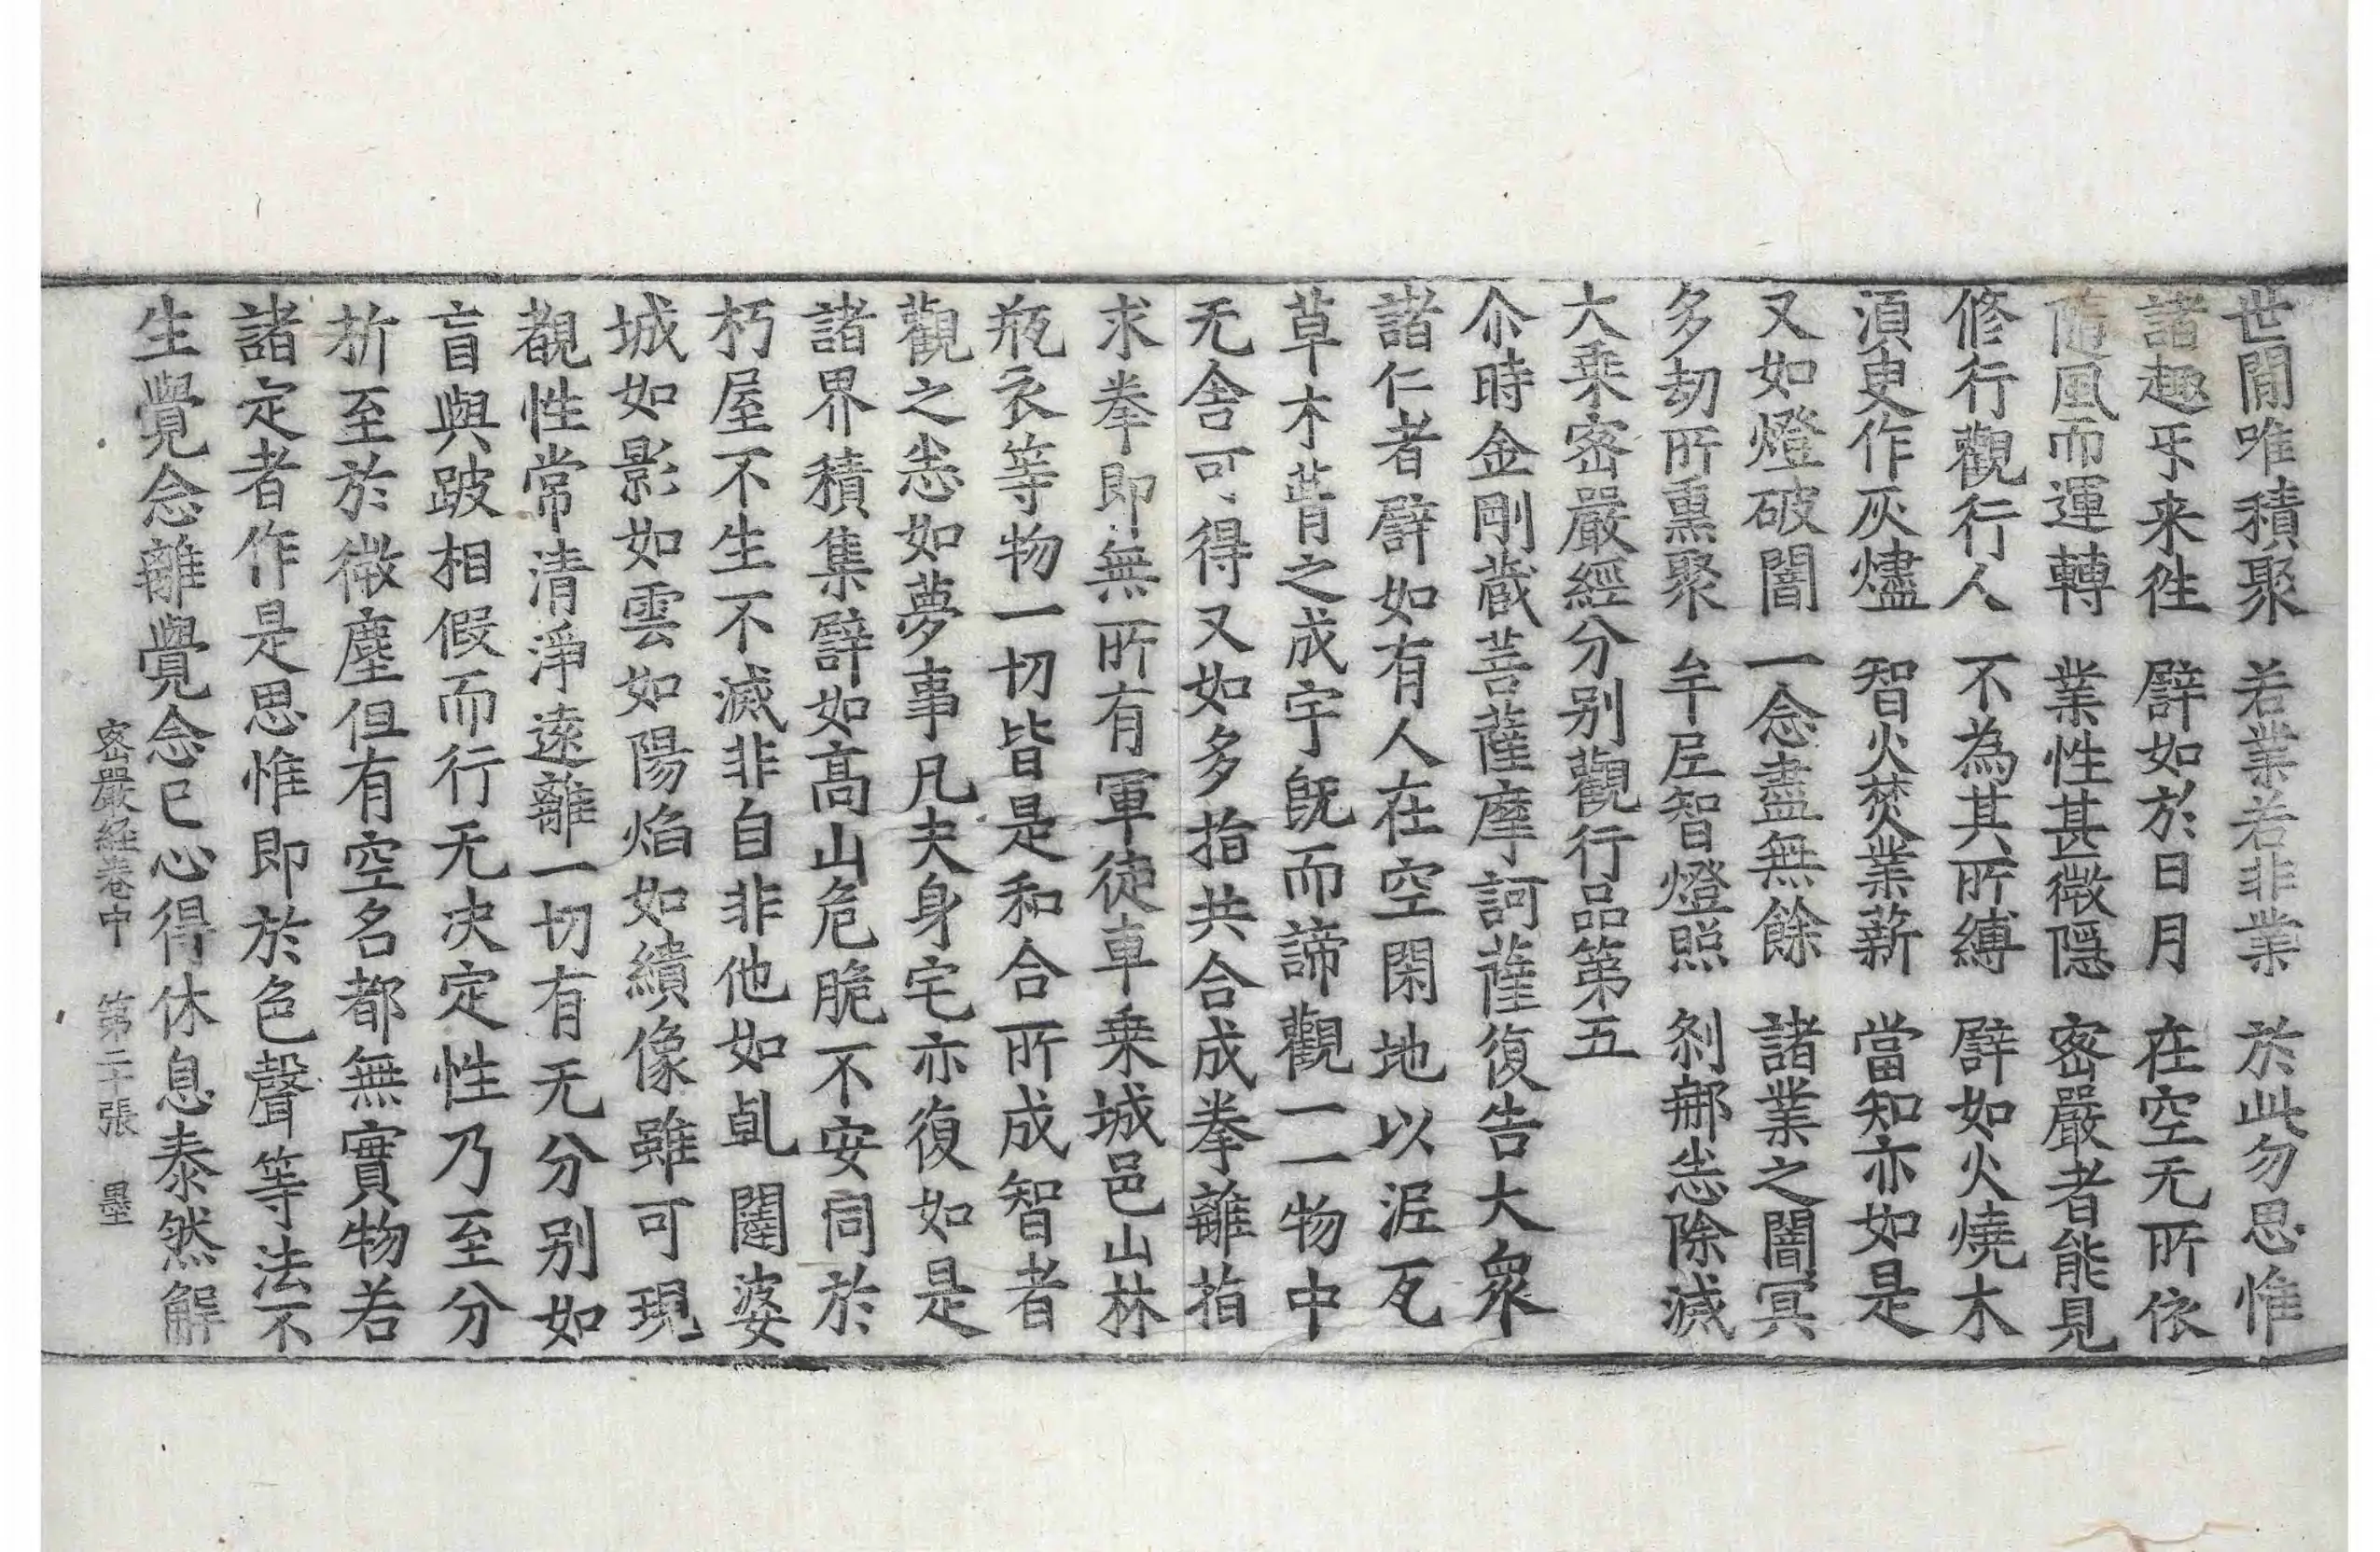 世間唯積聚 若業若非業 於此勿思惟
諸趣乎来徃 譬如於日月 在空无所依
隨風而運轉 業性甚微隱 密嚴者能見
修行觀行人 不為其所縛 譬如火燒木
湏臾作灰燼 智火焚業薪 當知亦如是
又如燈破闇 一念盡無餘 諸業之闇冥
多劫所熏聚 牟尼智燈照 剎那㤀除滅
大乗密嚴經分別觀行品第五
尒時金剛蔵菩薩摩訶薩復告大衆
諸仁者譬如有人在空閑地以泥瓦
草木葺之成宇旣而諦觀一一物中
无舍可得又如多指共合成拳離指
求拳即無所有軍徒車乗城邑山林
瓶衣等物一切皆是和合所成智者
觀之㤀如夢事凡夫身宅亦復如是
諸界積集譬如髙山危脆不安同於
朽屋不生不滅非自非他如乹闥婆
城如影如雲如陽焰如繢像雖可現
覩性常清淨遠離一切有无分別如
盲與跛相假而行无决定性乃至分
析至於微塵但有空名都無實物若
諸定者作是思惟即於色聲等法不
生覺念離覺念已心得休息泰然解
密嚴経卷中 第二十張 墨